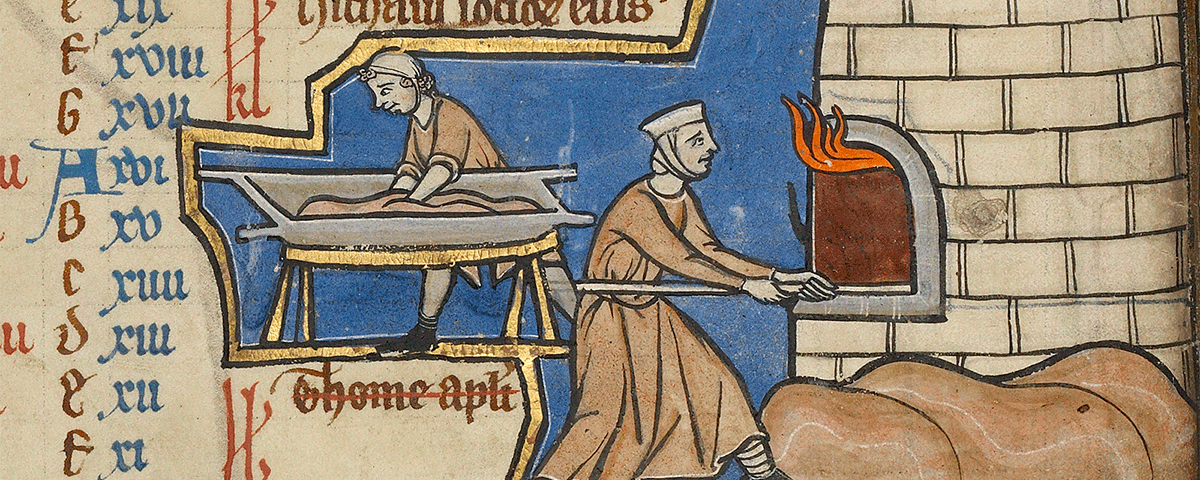 e xix Nichasii socioꝝ eius
f xviii
G xvii kl
A xvi
B xv
c xiiii
d xiii
e xii Thome apli
f xi